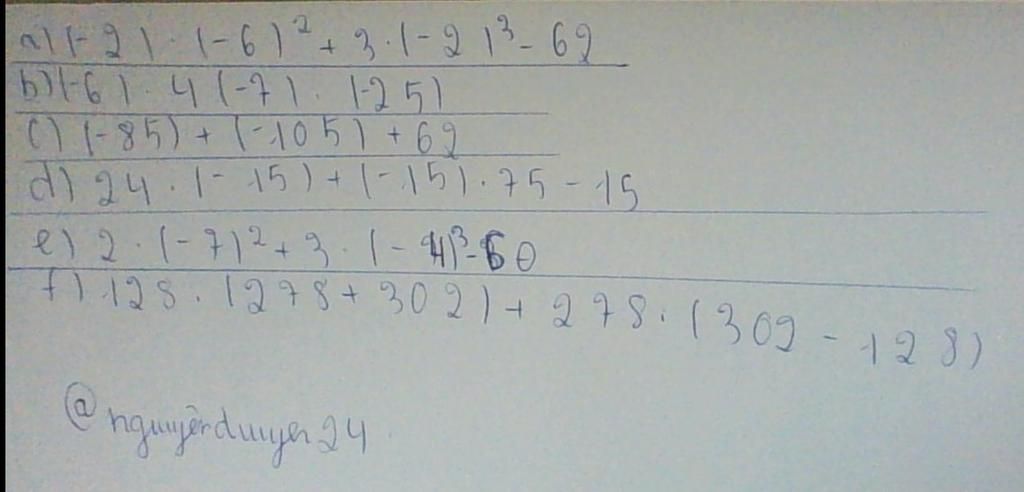 a) (-2) . (-6)² + 3 . (-2)³ - 62
b) (-6) . 4 (-7) . (-25)
c) (-85) + (-105) + 69
d) 24 . (-15) + (-15) . 75 - 15
e) 2 . (-7)² + 3 . (-4)³ - 60
f) 128 . (278 + 302) + 278 . (302 - 128)
@nguyênduyên24